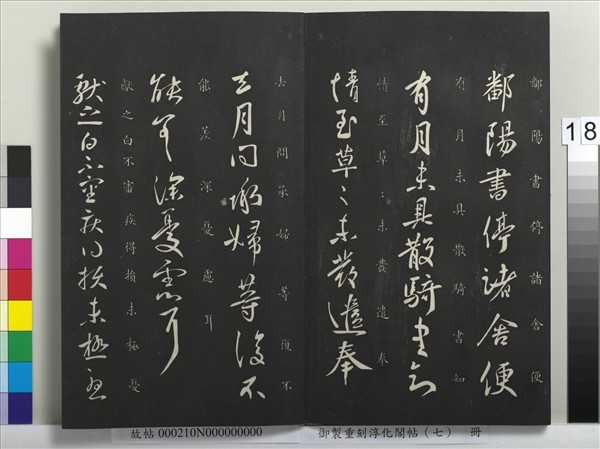 鄱陽書停諸舍便
鄱陽書停諸舍便
有月未具散騎書知
有月未具散騎書知
情至草々未發遣奉
情至草々未發遣奉
去月問承婦等復不
去月問承婦等復不
能差深憂慮耳
能差深憂慮耳
獻之白不審疾得損未極憂
獻之白不審疾得損未極憂
故帖 000210N000000000
御製重刻淳化閣帖（七） 冊
18